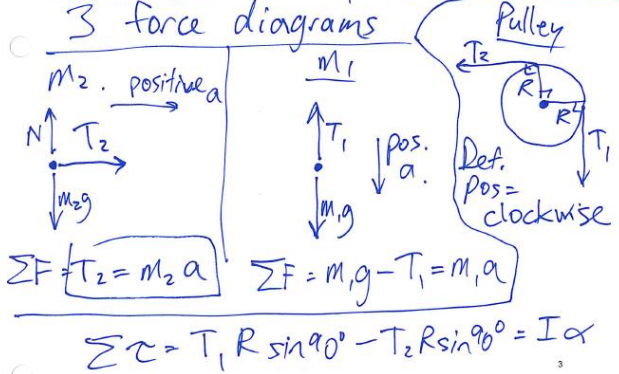 3 force diagrams
m₂. positive a
N T₂
m₂g
ΣF = T₂ = m₂a
m₁
T₁ pos. a.
m₁g
ΣF = m₁g - T₁ = m₁a
Pulley
T₂
R
R
T₁
Def.
pos =
clockwise
Στ = T₁ R sin90° - T₂ R sin90° = Iα
3